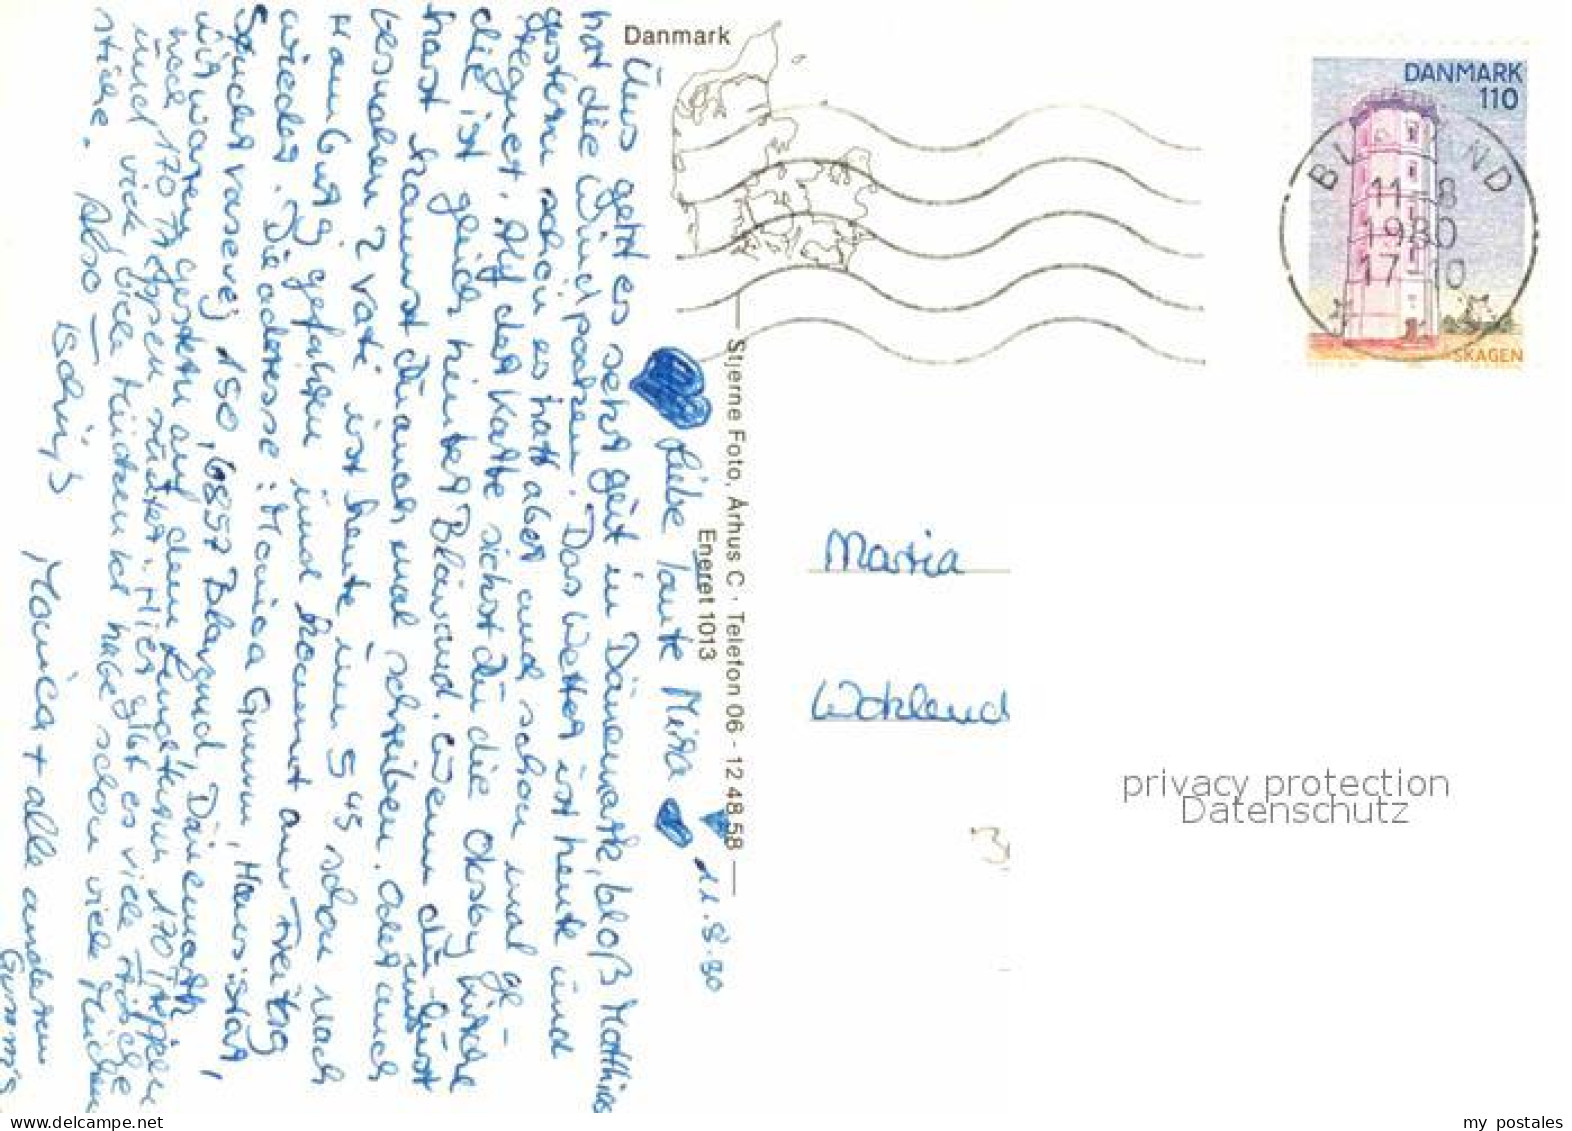 Danmark
DANMARK
110
BLÅVAND
11-8
1980
17-10
SKAGEN
Stjerne Foto, Århus C · Telefon 06 - 12 48 58
Eneret 1013
11.8.80
Liebe Tante Mira
Uns geht es sehr gut in Dänemark, bloß Matthias
hat die Windpocken. Das Wetter ist heute und
gestern schön es hatt aber auch schon mal ge-
regnet. Auf der Karte siehst du die Oksby Kirche
die ist gleich hinter Blåvand. Wenn du Lust
hast kannst du auch mal schreiben. oder uns
besuchen Vati ist heute um 5 45 schon nach
Hamburg gefahren und kommt am Freitag
wieder. Die adresse: Monica Gumm, Haus
150, 6857 Blavand, Dänemark
wir waren gestern auf dem Leuchtturm 170 Treppen
hoch 170 Treppen runter. Hier gibt es viele Fische
und viele, viele
Also Tschüß
Monica + alle anderen
Gumms
Maria
Wokland
privacy protection
Datenschutz
my postales